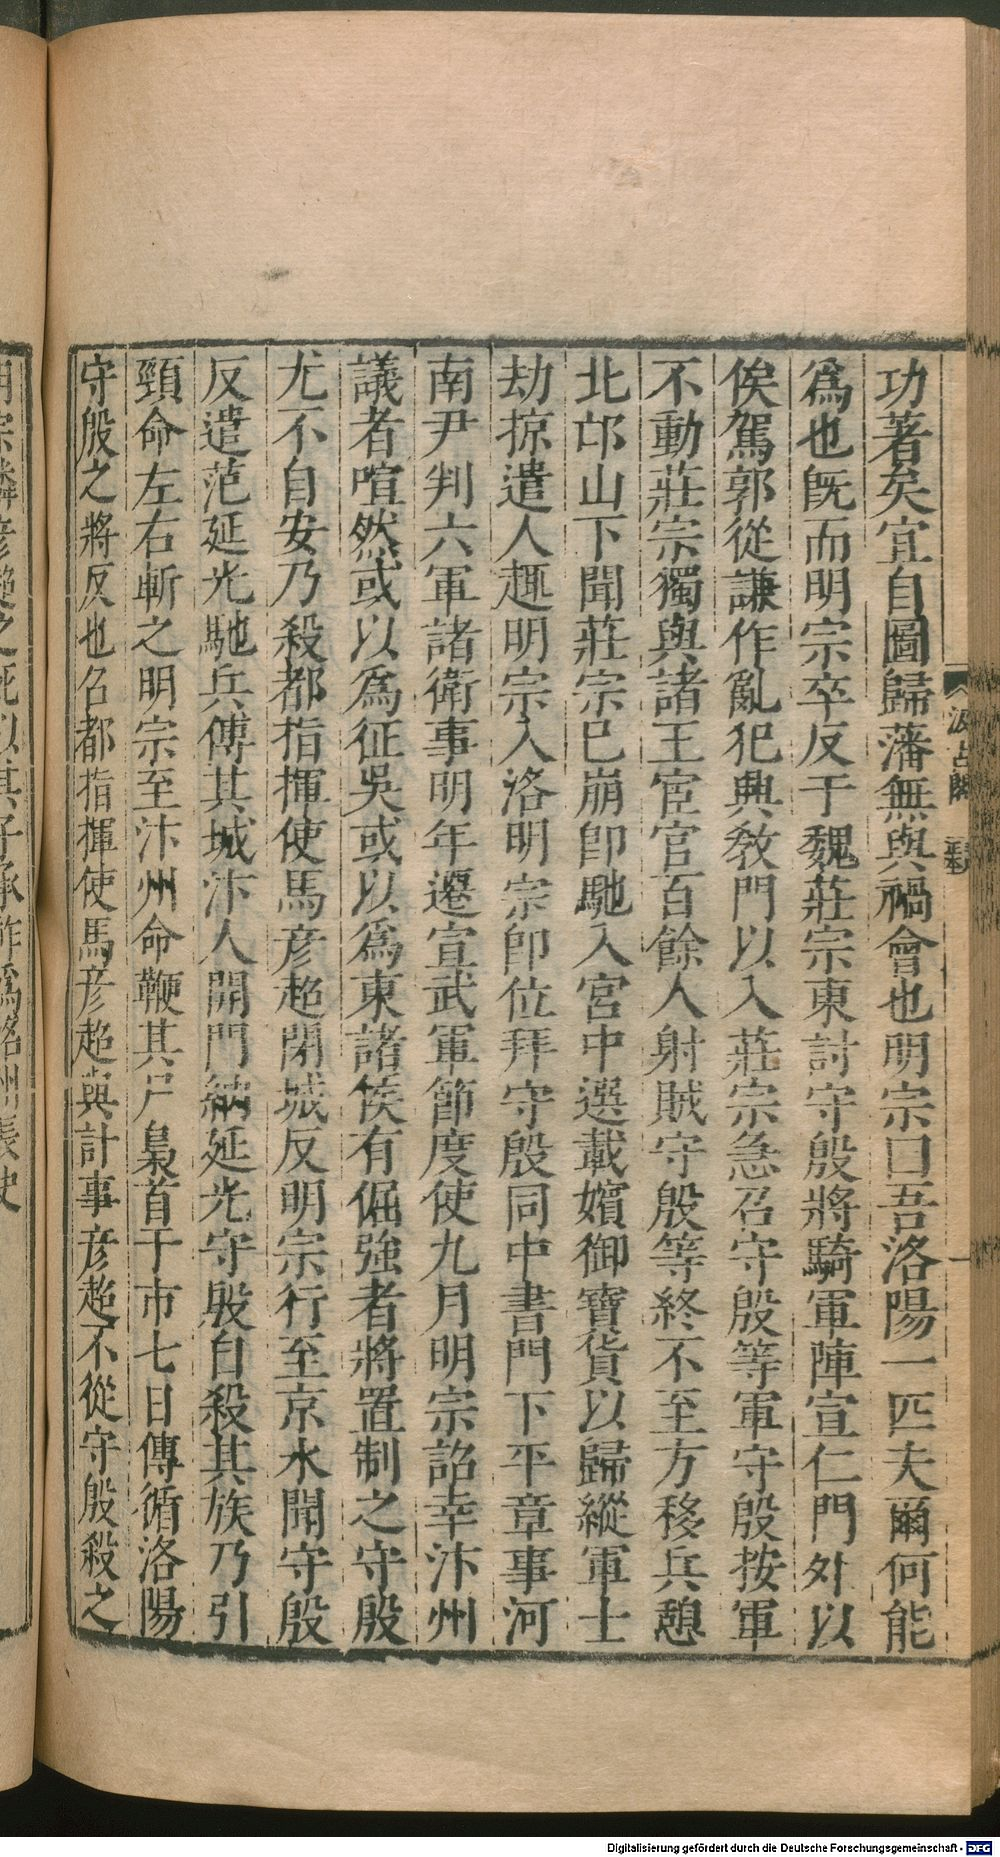 功著矣宜自圖歸藩無與禍會也明宗曰吾洛陽一匹夫爾何能
爲也既而明宗卒反于魏莊宗東討守殷將騎軍陣宣仁門外以
俟駕郭從謙作亂犯興教門以入莊宗急召守殷等軍守殷按軍
不動莊宗獨與諸王宦官百餘人射賊守殷等終不至方移兵憩
北邙山下聞莊宗已崩卽馳入宮中選載嬪御寶貨以歸縱軍士
劫掠遣人趣明宗入洛明宗卽位拜守殷同中書門下平章事河
南尹判六軍諸衛事明年遷宣武軍節度使九月明宗詔幸汴州
議者喧然或以爲征吳或以爲東諸侯有倔強者將置制之守殷
尤不自安乃殺都指揮使馬彦超閉城反明宗行至京水聞守殷
反遣范延光馳兵傅其城汴人開門納延光守殷自殺其族乃引
頸命左右斬之明宗至汴州命鞭其尸梟首于市七日傳徇洛陽
守殷之將反也召都指揮使馬彦超與計事彦超不從守殷殺之
明宗憐彦超之死以其子承祚爲洺州長史
汲古閣
Digitalisierung gefördert durch die Deutsche Forschungsgemeinschaft - DFG